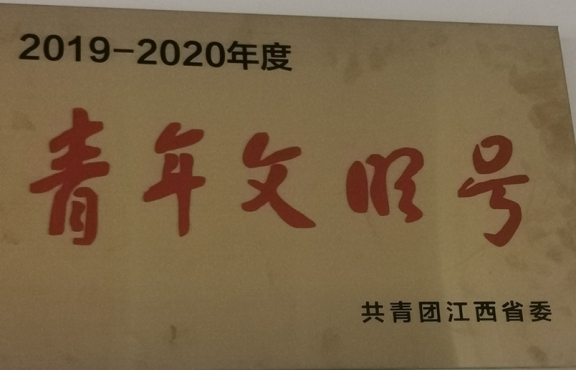 2019-2020年度
青年文明号
共青团江西省委